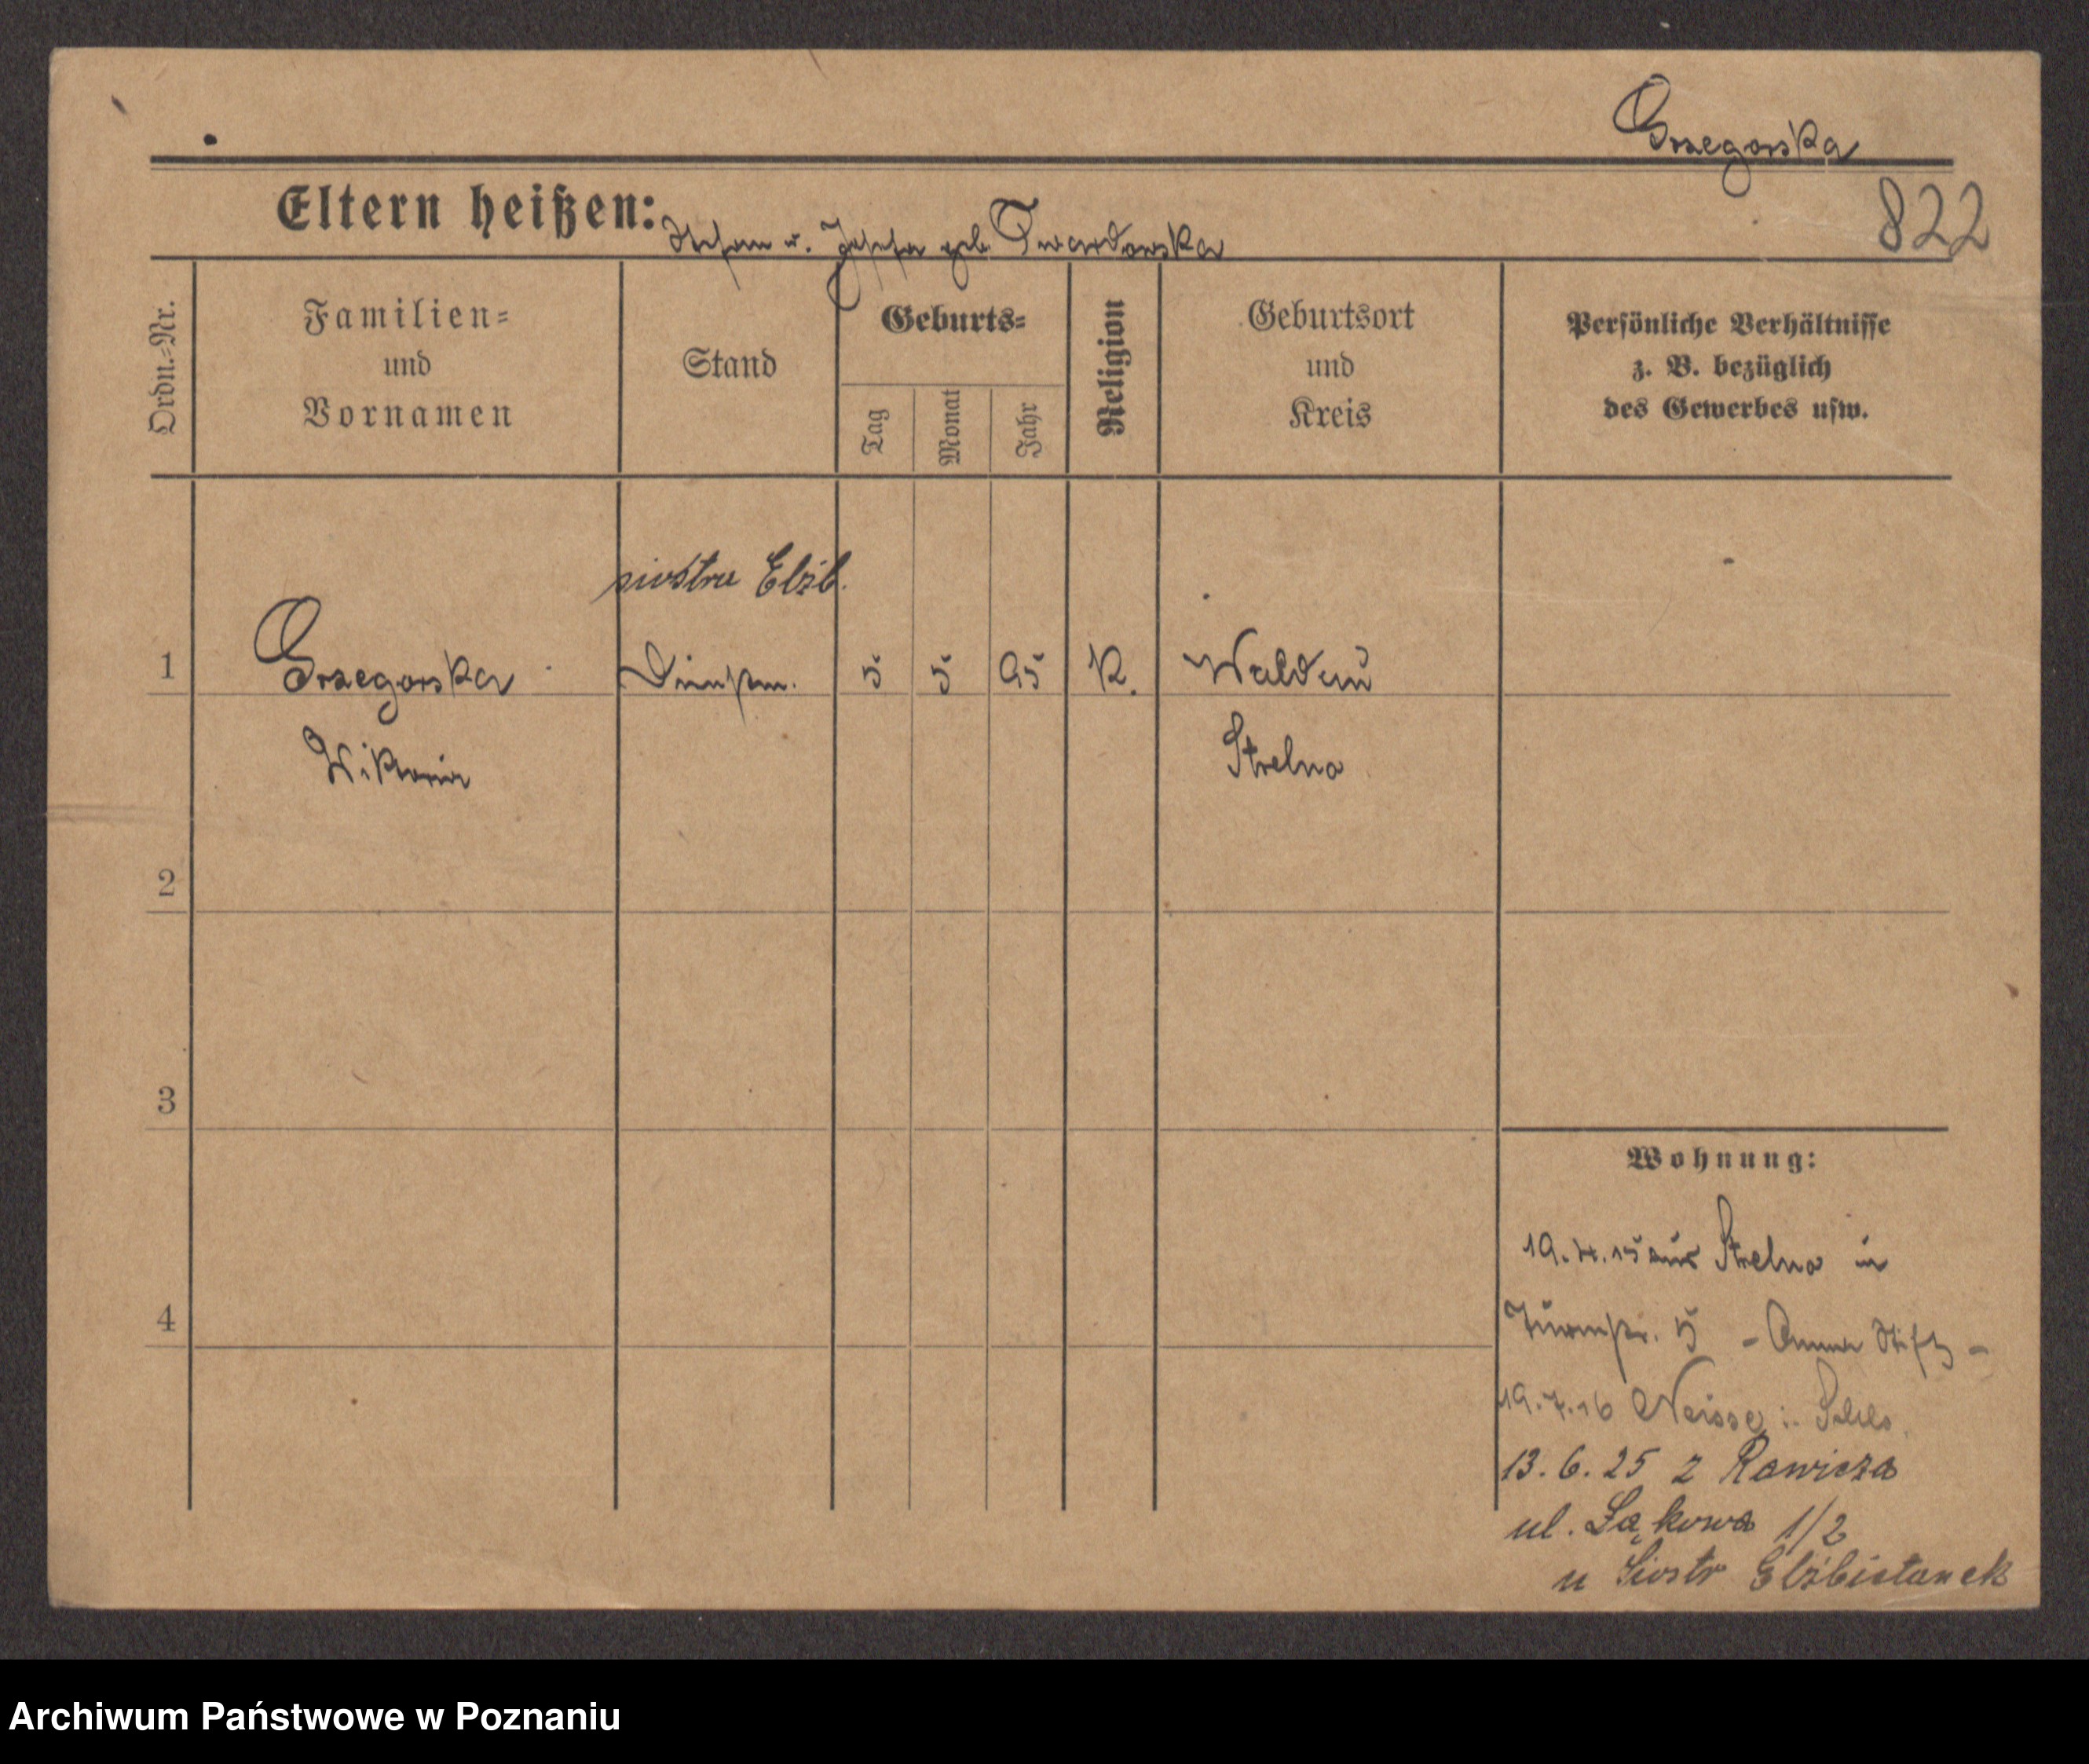 Grzegorska
Eltern heißen: Stefan u. Josefa geb. Twardowska
822
Ordn.-Nr.
Familien-
und
Vornamen
Stand
Geburts-
Tag
Monat
Jahr
Religion
Geburtsort
und
Kreis
Persönliche Verhältnisse
z. B. bezüglich
des Gewerbes usw.
siostra Elżb.
1 Grzegorska 5 5 95 K. Waldau
Wiktoria Strelno
2
3
Wohnung:
19. 4. 15 aus Strelno in
4
Turmstr. 5 - Annen Stift -
19. 7. 16 Neisse i. Schles.
13. 6. 25 z Rawicza
ul. Łąkowa 1/2
u Siostr Elżbietanek
Archiwum Państwowe w Poznaniu